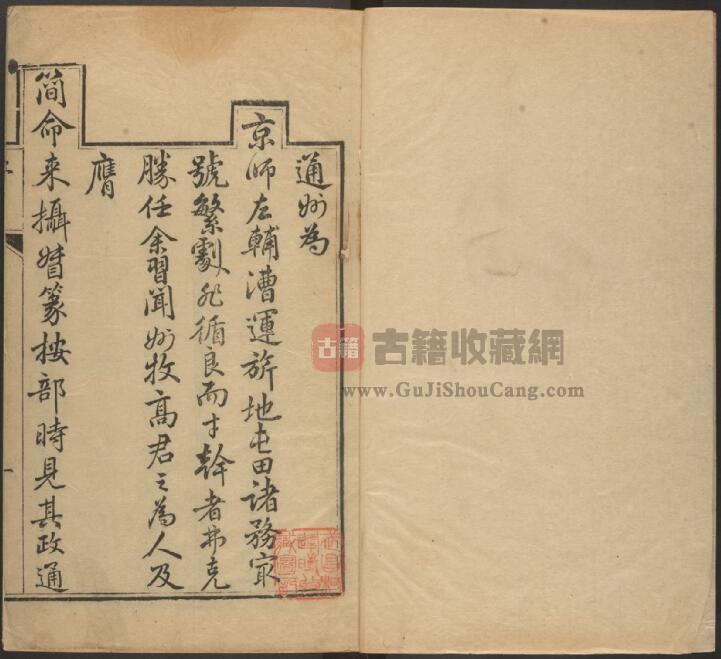 通州為
京師左輔漕運旂地屯田諸務㝡
號繁劇非循良而才幹者弗克
勝任余習聞州牧高君之為人及
膺
簡命来攝督篆按部時見其政通
古籍
古籍收藏網
www.GuJiShouCang.com